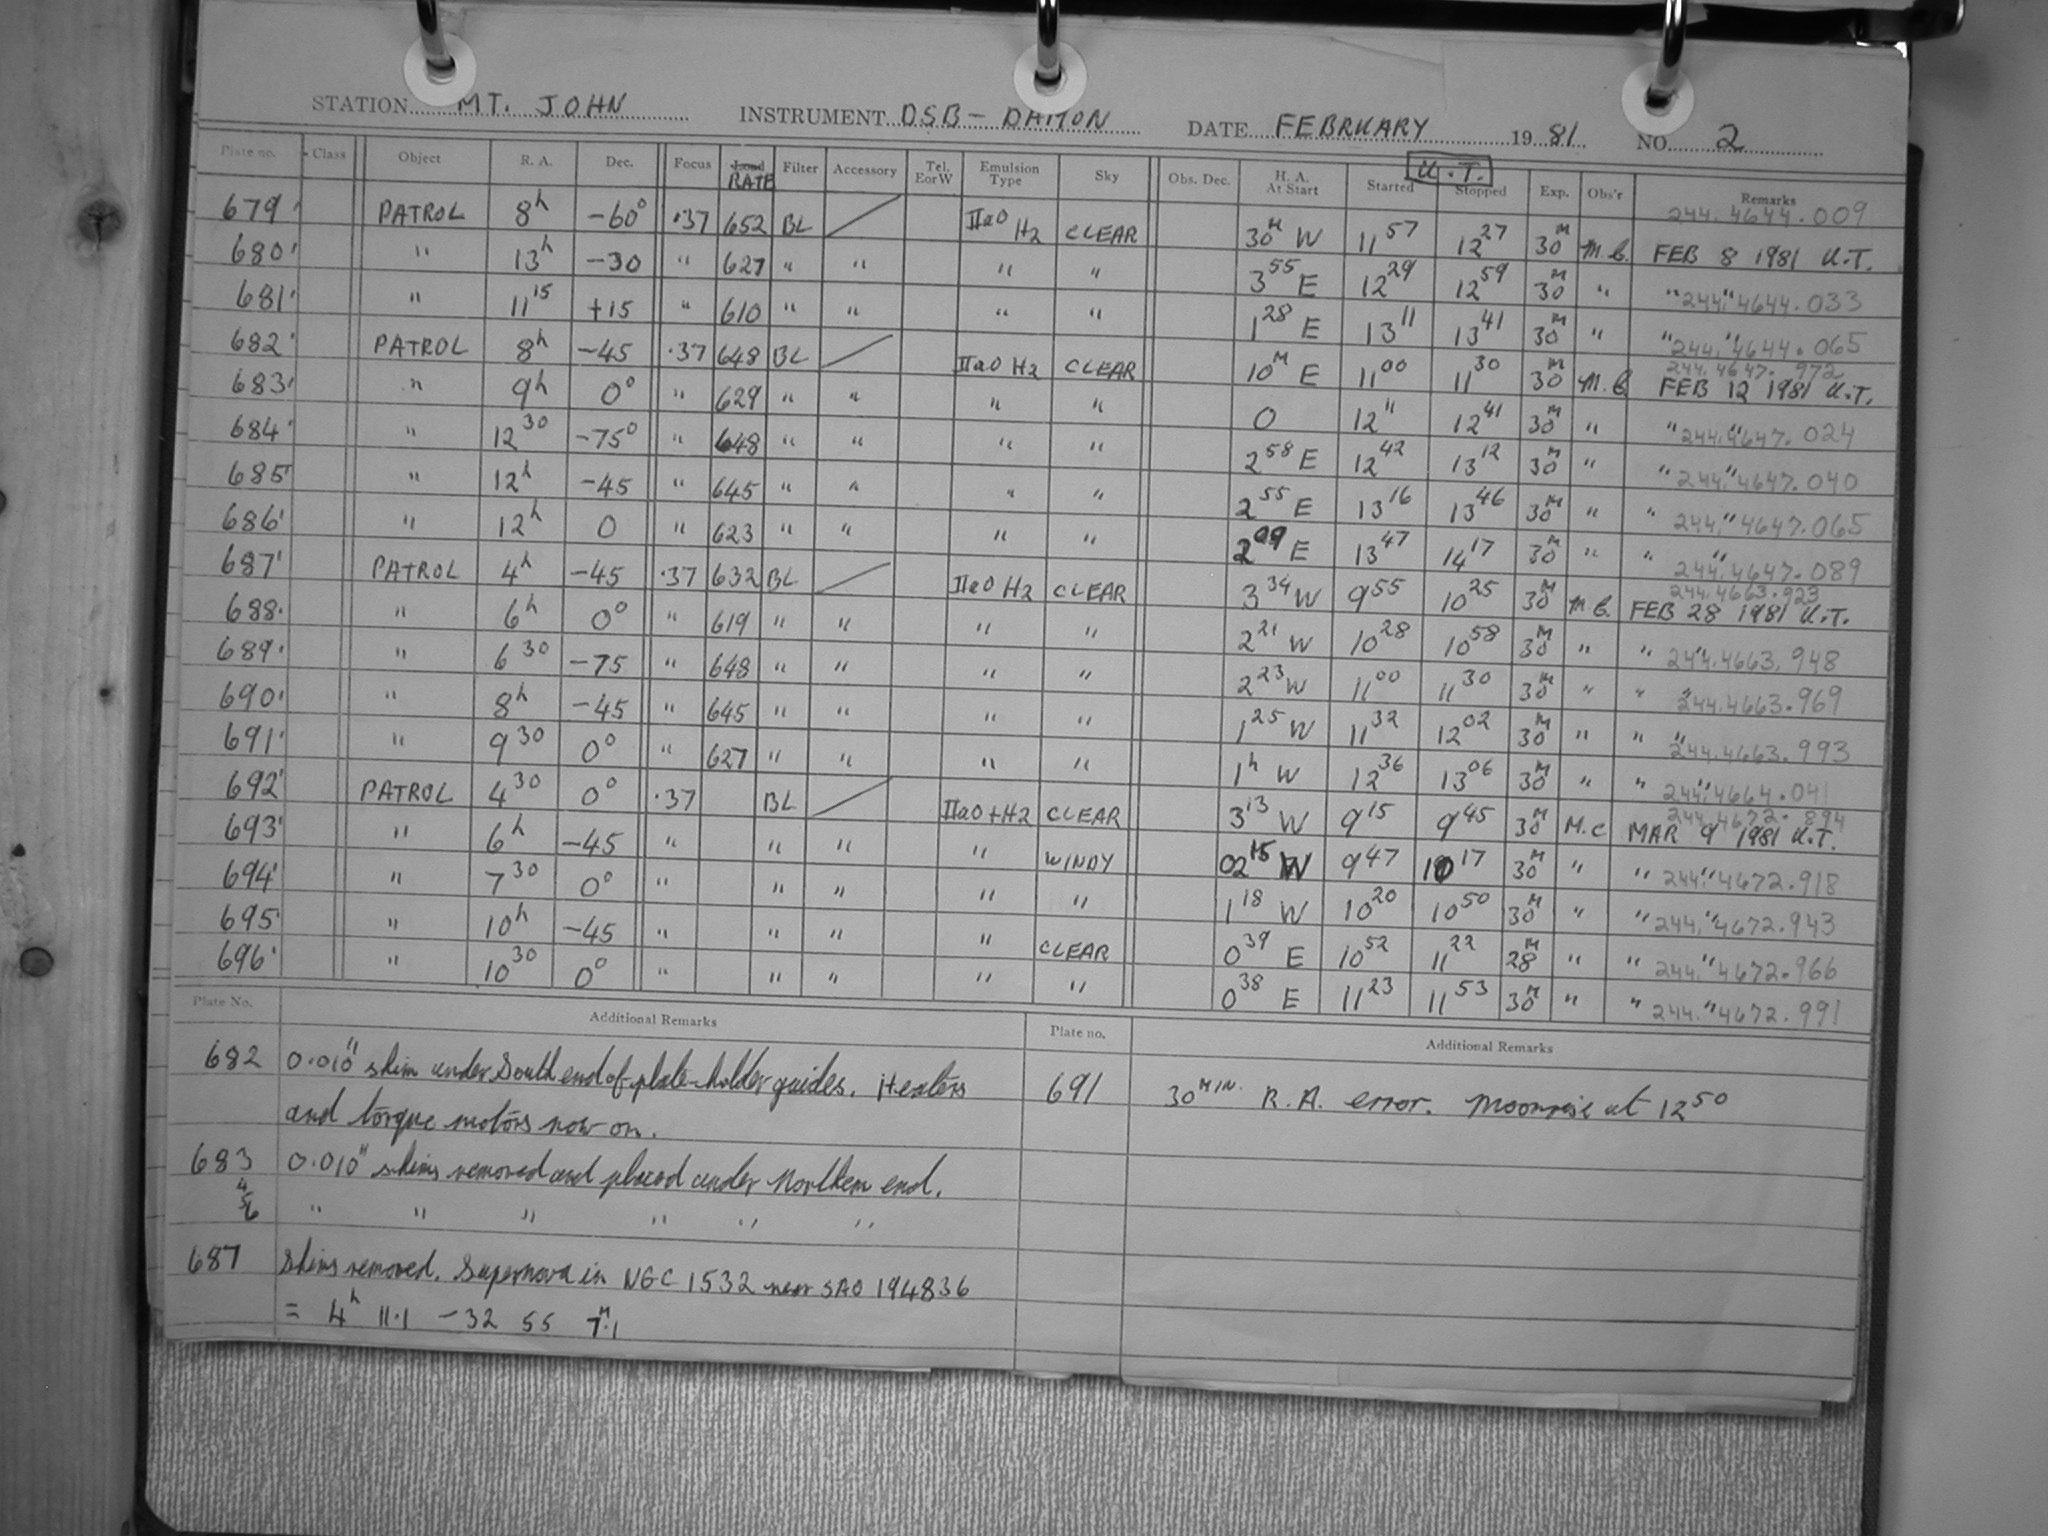 STATION MT. JOHN INSTRUMENT DSB - DAMON DATE FEBRUARY 19 81 NO. 2
Plate no. Class Object R. A. Dec. Focus Load RATE Filter Accessory Tel. EorW Emulsion Type Sky Obs. Dec. H. A. At Start U.T. Started Stopped Exp. Obs'r Remarks
679 PATROL 8h -60° .37 652 BL IIaO H2 CLEAR 30M W 11 57 12 27 30M M.C. 244.4644.009 FEB 8 1981 U.T.
680 " 13h -30 " 627 " " " " 3 55 E 12 29 12 59 30M " " " 244.4644.033
681 " 11 15 +15 " 610 " " " " 1 28 E 13 11 13 41 30M " " " 244.4644.065
682 PATROL 8h -45 .37 648 BL IIaO H2 CLEAR 10M E 11 00 11 30 30M M.C 244.4647.972 FEB 12 1981 U.T.
683 " 9h 0° " 629 " " " " 0 12 11 12 41 30M " " " 244.4647.024
684 " 12 30 -75° " 648 " " " " 2 58 E 12 42 13 12 30M " " " 244.4647.040
685 " 12h -45 " 645 " " " " 2 55 E 13 16 13 46 30M " " " 244.4647.065
686 " 12h 0 " 623 " " " " 2 09 E 13 47 14 17 30M " " " 244.4647.089
687 PATROL 4h -45 .37 632 BL IIaO H2 CLEAR 3 34 W 9 55 10 25 30M M.C. 244.4663.923 FEB 28 1981 U.T.
688 " 6h 0° " 619 " " " " 2 21 W 10 28 10 58 30M " " 244.4663.948
689 " 6 30 -75 " 648 " " " " 2 23 W 11 00 11 30 30M " " " 244.4663.969
690 " 8h -45 " 645 " " " " 1 25 W 11 32 12 02 30M " " " 244.4663.993
691 " 9 30 0° " 627 " " " " 1h W 12 36 13 06 30M " " " 244.4664.041
692 PATROL 4 30 0° .37 BL IIaO+H2 CLEAR 3 13 W 9 15 9 45 30M M.C 244.4672.894 MAR 9 1981 U.T.
693 " 6h -45 " " " " WINDY 02 15 W 9 47 10 17 30M " " " 244.4672.918
694 " 7 30 0° " " " " " 1 18 W 10 20 10 50 30M " " " 244.4672.943
695 " 10h -45 " " " " CLEAR 0 39 E 10 52 11 22 28M " " " 244.4672.966
696 " 10 30 0° " " " " " 0 38 E 11 23 11 53 30M " " " 244.4672.991
Plate No. Additional Remarks Plate no. Additional Remarks
682 0.010" shim under South end of plate-holder guides. Heaters
and torque motors now on.
683 0.010" shims removed and placed under Northern end.
4
5
6 " " " " " "
687 Shims removed. Supernova in NGC 1532 near SAO 194836
= 4h 11.1 -32 55 7M.1
691 30MIN. R.A. error. Moonrise at 12 50